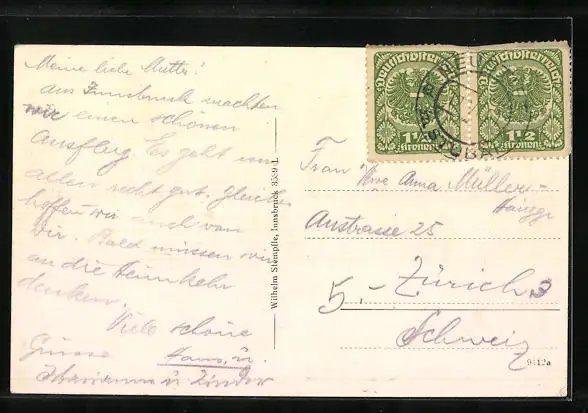 Meine liebe Mutter!
Aus Innsbruck machten
wir einen schönen
Ausflug. Es geht uns
allen recht gut. Gleiches
hoffen wir auch von
Dir. Bald müssen wir
an die Heimkehr
denken.
Viele schöne
Grüsse Hans, u.
Marianne u. Kinder
Wilhelm Stempfle, Innsbruck
Deutschösterreich
1 1/2
Kronen
Deutschösterreich
1 1/2
Kronen
Frau Wwe Anna Müller-
Austrasse 25
5.- Zürich 3
Schweiz
9412a